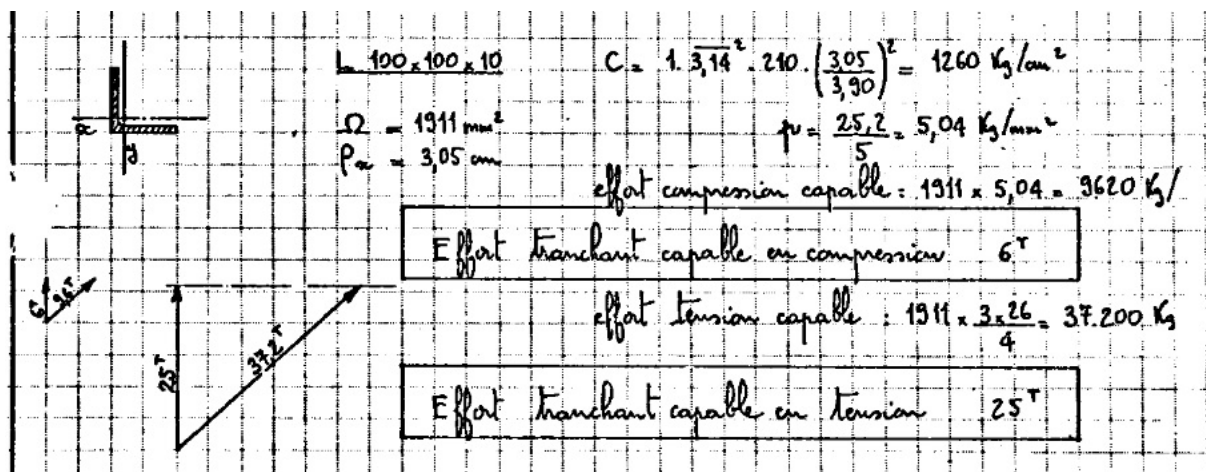 L 100 x 100 x 10
Ω = 1911 mm²
ρx = 3,05 cm
x
y
C = 1. 3,14² . 210 . (3,05/3,90)² = 1260 Kg/cm²
= 25,2/5 = 5,04 Kg/mm²
effort compression capable : 1911 x 5,04 = 9620 Kg/
Effort tranchant capable en compression 6ᵀ
effort tension capable : 1911 x 3x26/4 = 37.200 Kg
Effort tranchant capable en tension 25ᵀ
6ᵀ
9,6ᵀ
25ᵀ
37,2ᵀ